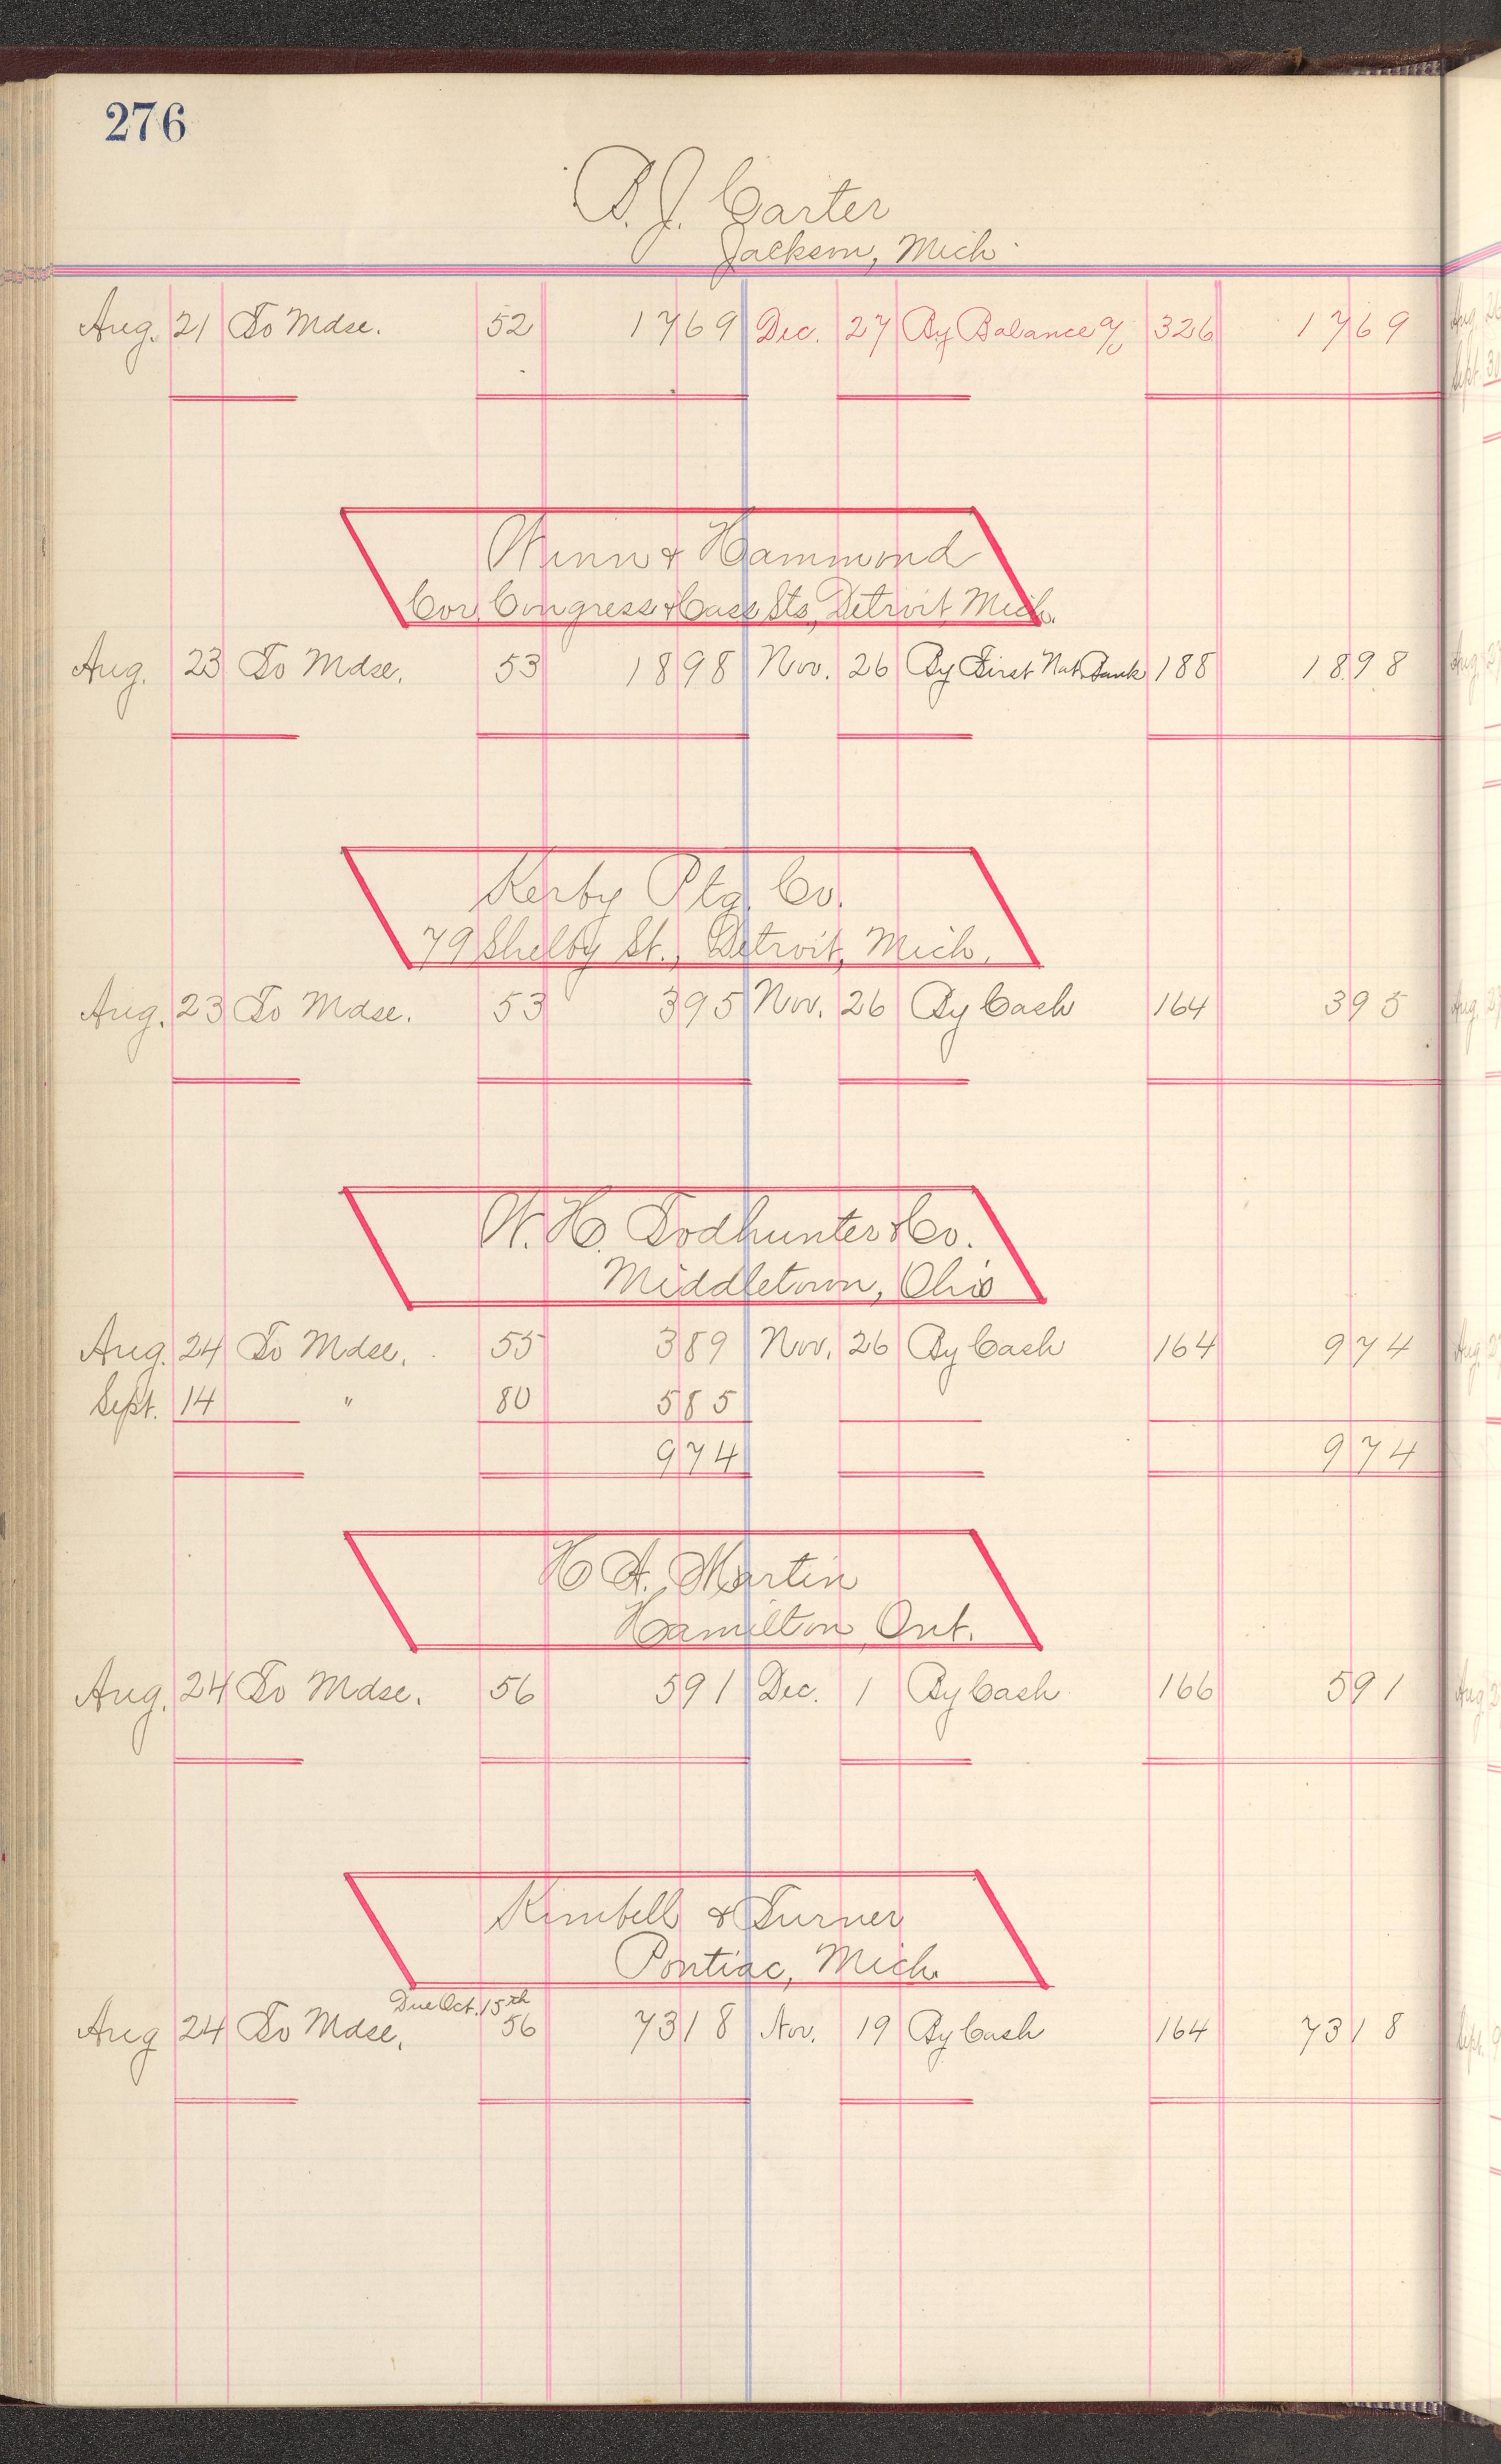 276
B. J. Carter
Jackson, Mich.
Aug. 21 To Mdse. 52 17 69 Dec. 27 By Balance a/c 326 17 69
Winn & Hammond
Cor. Congress & Cass Sts., Detroit, Mich.
Aug. 23 To Mdse. 53 18 98 Nov. 26 By First Nat. Bank 188 18 98
Kerby Ptg. Co.
79 Shelby St., Detroit, Mich.
Aug. 23 To Mdse. 53 3 95 Nov. 26 By Cash 164 3 95
W. H. Todhunter & Co.
Middletown, Ohio
Aug. 24 To Mdse. 55 3 89 Nov. 26 By Cash 164 9 74
Sept. 14 " 80 5 85
9 74 9 74
H. A. Martin
Hamilton, Ont.
Aug. 24 To Mdse. 56 5 91 Dec. 1 By Cash 166 5 91
Kimbell & Turner
Pontiac, Mich.
Due Oct. 15th
Aug 24 To Mdse. 56 73 18 Nov. 19 By Cash 164 73 18